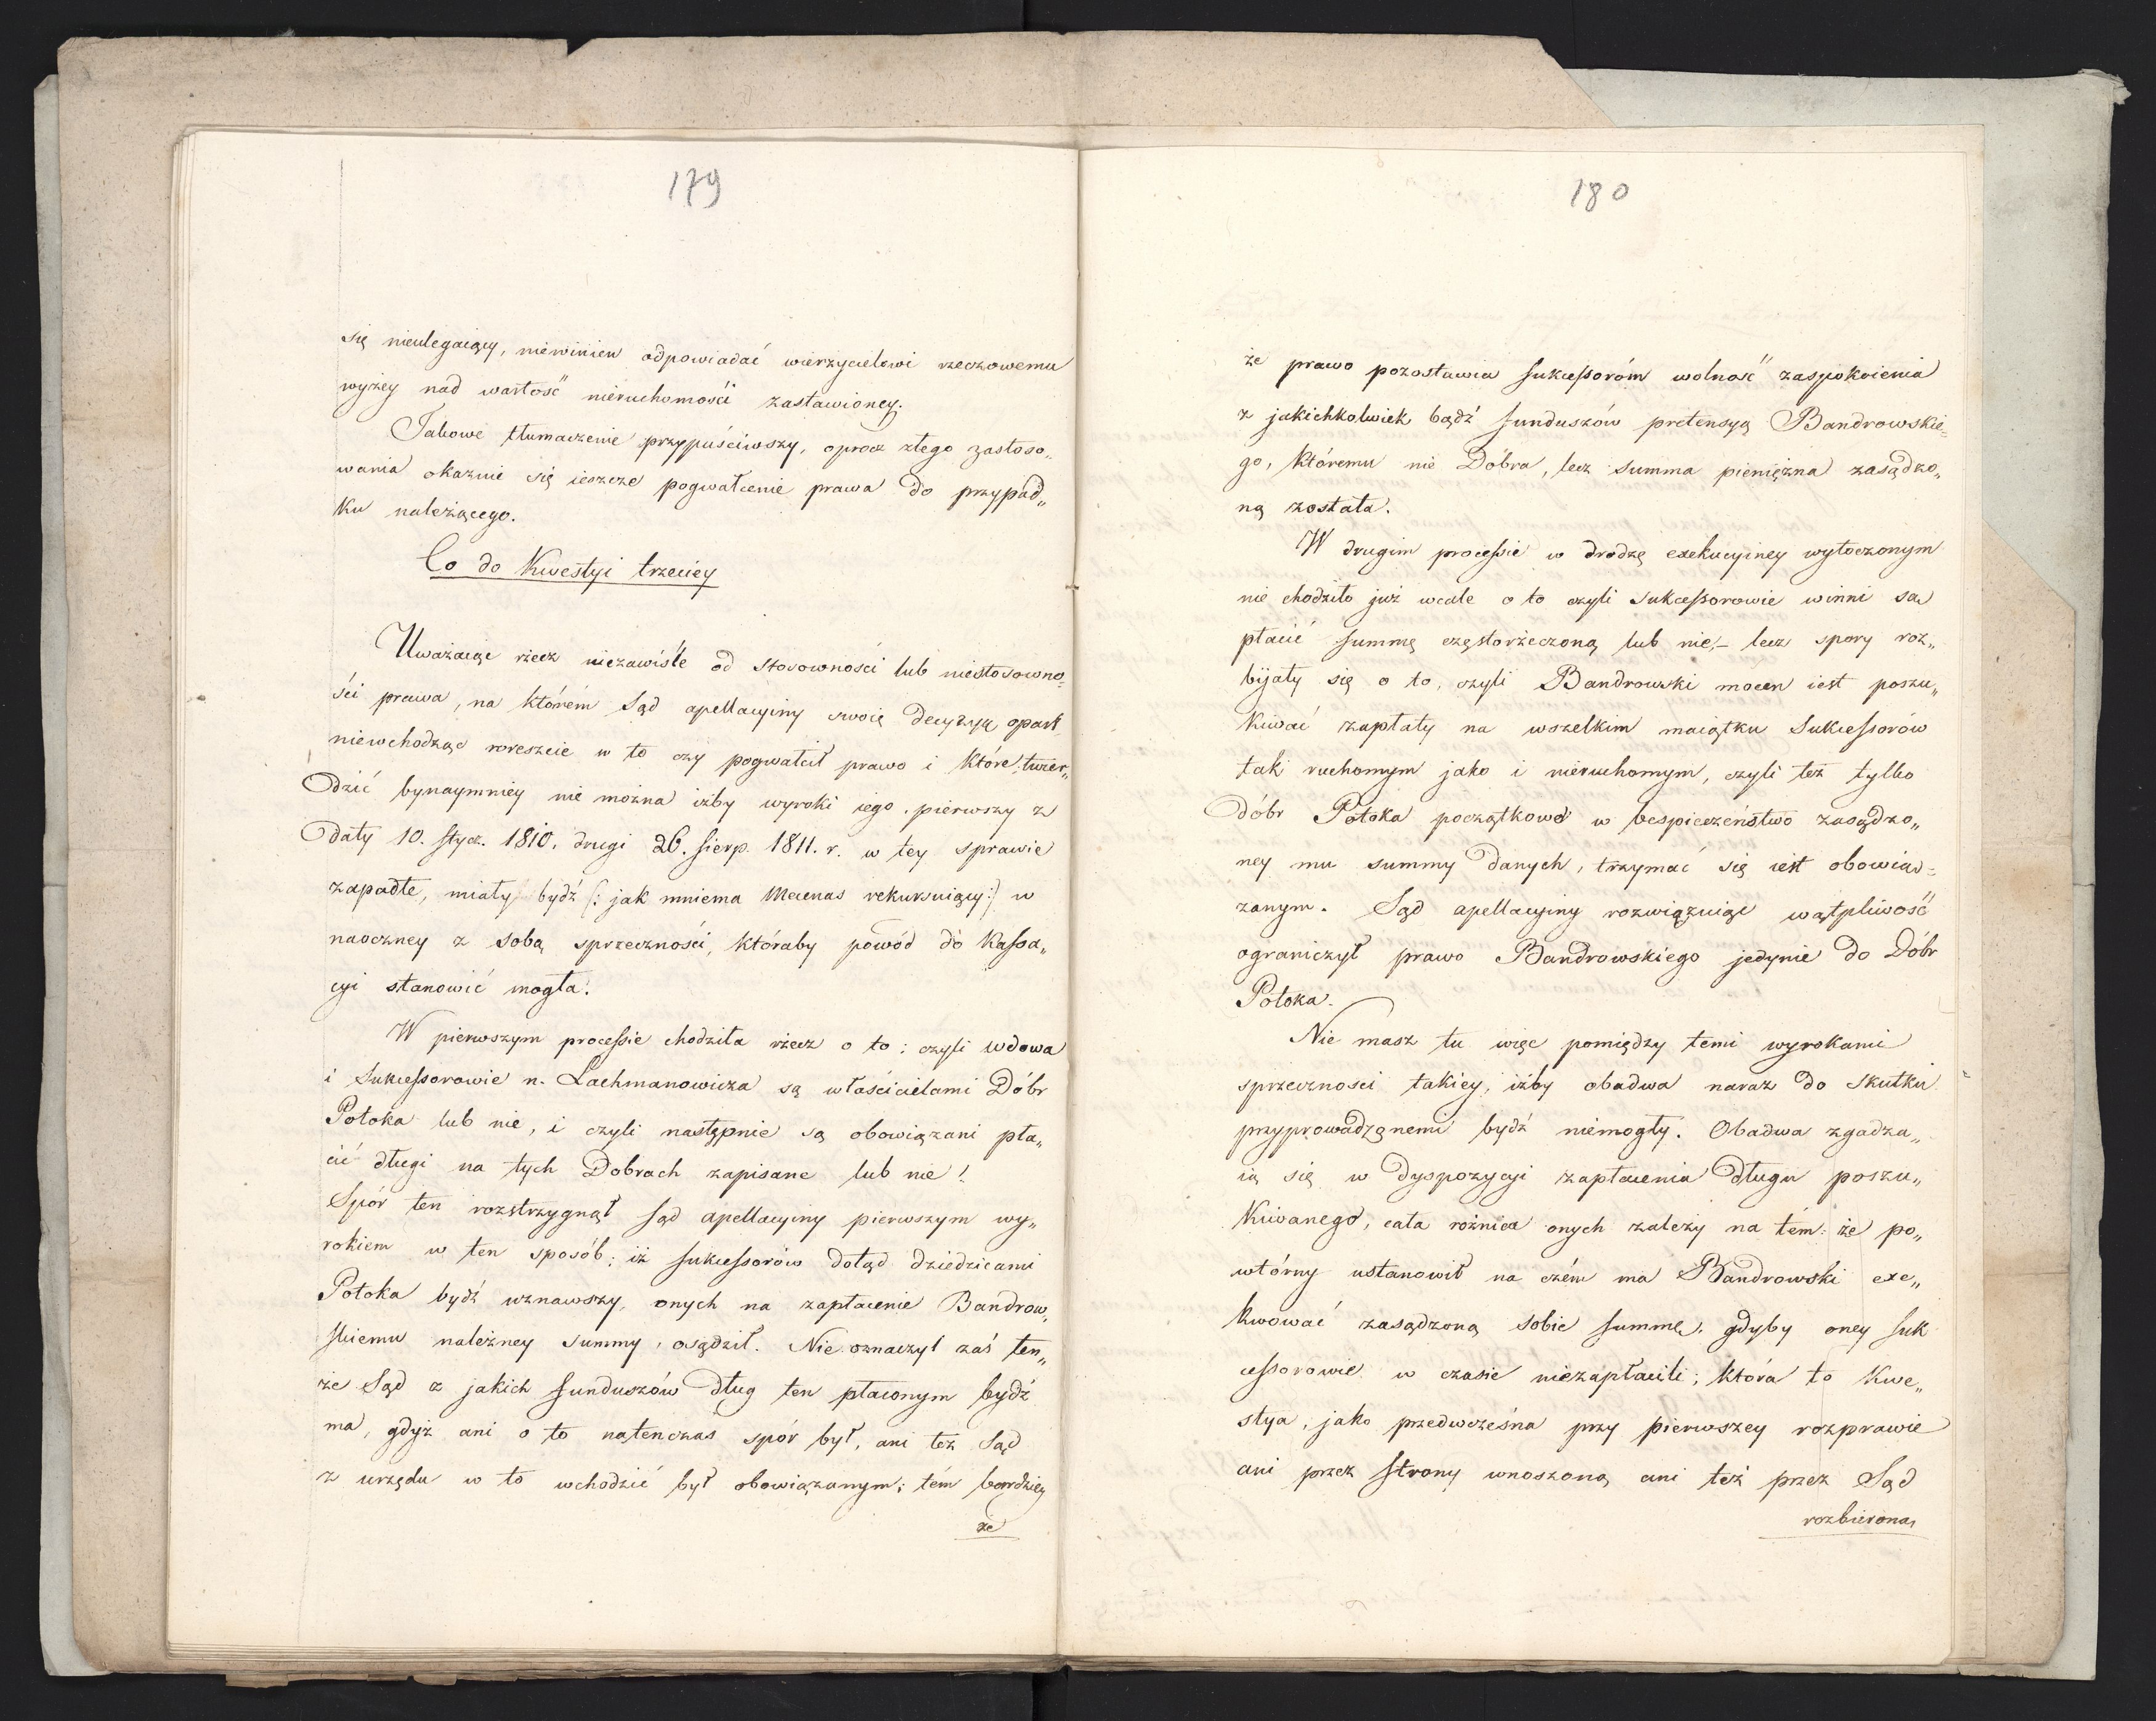 179
się nieulegaiący, niewinien odpowiadać wierzycielowi rzeczowemu
wyżey nad wartość nieruchomości zastawioney.
Takowe tłumaczenie przypuściwszy, oprocz złego zastoso„
wania okazuie się ieszcze pogwałcenie prawa do przypad„
ku należącego.
Co do Kwestyi trzeciey
Uważaiąc rzecz niezawiśle od stosowności lub niestosowno„
ści prawa, na którém Sąd apellacyiny swoię decyzyą oparł
niewchodząc wreszcie w to czy pogwałcił prawo i które, twier„
dzić bynaymniey nie można iżby wyroki iego, pierwszy z
daty 10. Stycz. 1810, drugi 26. Sierp. 1811. r. w tey sprawie
zapadłe, miały bydź (: jak mniema Mecenas rekursuiący :) w
naoczney z sobą sprzeczności, któraby powód do Kassa„
cyi stanowić mogła.
W pierwszym processie chodziła rzecz o to: czyli wdowa
i Sukcessorowie n. Lachmanowicza są właścicielami Dóbr
Potoka lub nie, i czyli następnie są obowiązani pła„
cić długi na tych Dobrach zapisane lub nie!
Spór ten rozstrzygnął Sąd apellacyiny pierwszym wy„
rokiem w ten sposób; iż Sukcessorów dotąd dziedzicami
Potoka bydź uznawszy, onych na zapłacenie Bandrow„
skiemu należney summy, osądził. Nie oznaczył zaś ten„
że Sąd z jakich funduszów dług ten płaconym bydź
ma, gdyż ani o to natenczas spór był, ani też Sąd
z urzędu w to wchodzić był obowiązanym; tém bardziey
że
180
że prawo pozostawia Sukcessoróm wolność zaspokoienia
z jakichkolwiek bądź funduszów pretensyą Bandrowskie„
go, któremu nie Dobra, lecz Summa pieniężna zasądzo„
ną została.
W drugim processie w drodze exekucyiney wytoczonym
nie chodziło już wcale o to czyli Sukcessorowie winni są
płacić summę częstorzeczoną lub nie, – lecz spory roz„
bijały się o to, czyli Bandrowski mocen iest poszu„
kiwać zapłaty na wszelkim maiątku Sukcessorów
tak ruchomym jako i nieruchomym, czyli też tylko
dóbr Potoka początkowo w bespieczeństwo zasądzo„
ney mu summy danych, trzymać się iest obowią„
zanym. Sąd apellacyiny rozwiązuiąc wątpliwość
ograniczył prawo Bandrowskiego jedynie do Dóbr
Potoka.
Nie masz tu więc pomiędzy temi wyrokami
sprzeczności takiey, iżby obadwa naraz do skutku
przyprowadzonemi bydź niemogły. Obadwa zgadza„
ią się w dyspozycyi zapłacenia długu poszu„
kiwanego, cała rożnica onych zależy na tém: że po„
wtórny ustanowił na czém ma Bandrowski exe„
kwować zasądzoną sobie summę, gdyby oney suk
cessorowie w czasie niezapłacili; która to kwe„
stya, jako przedwczesna przy pierwszey rozprawie
ani przez strony wnoszoną ani też przez Sąd
rozbieraną